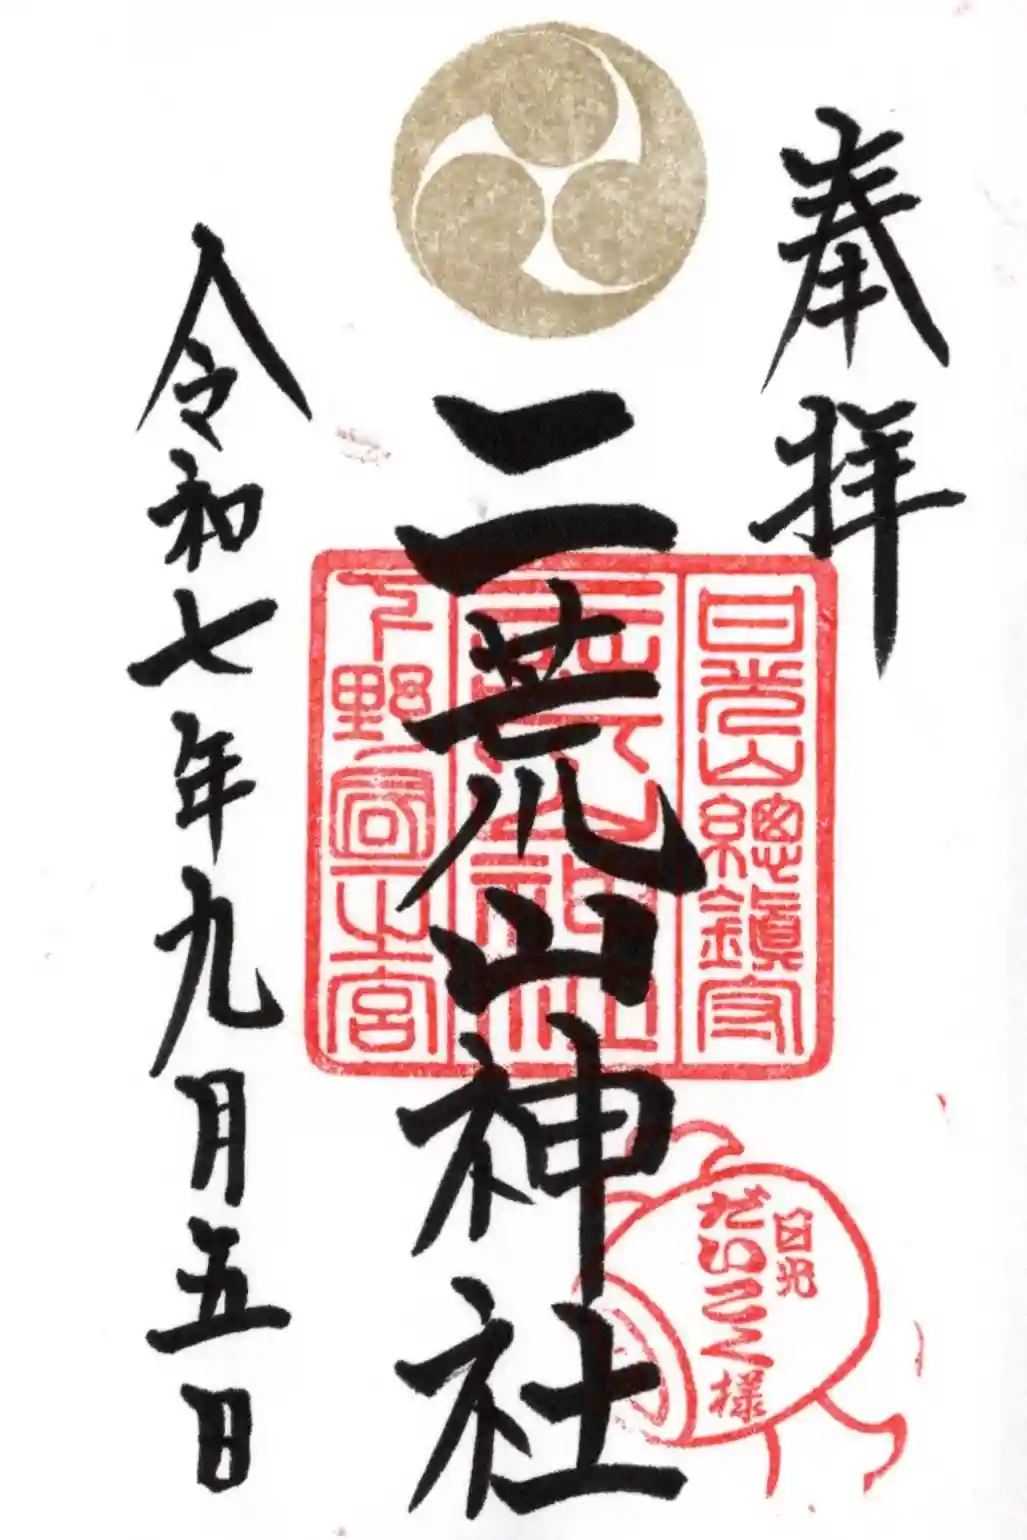 奉拝
日光山總鎮守
二荒山神社
二荒山神社
下野国一之宮
令和七年九月五日
日光
だいこく様